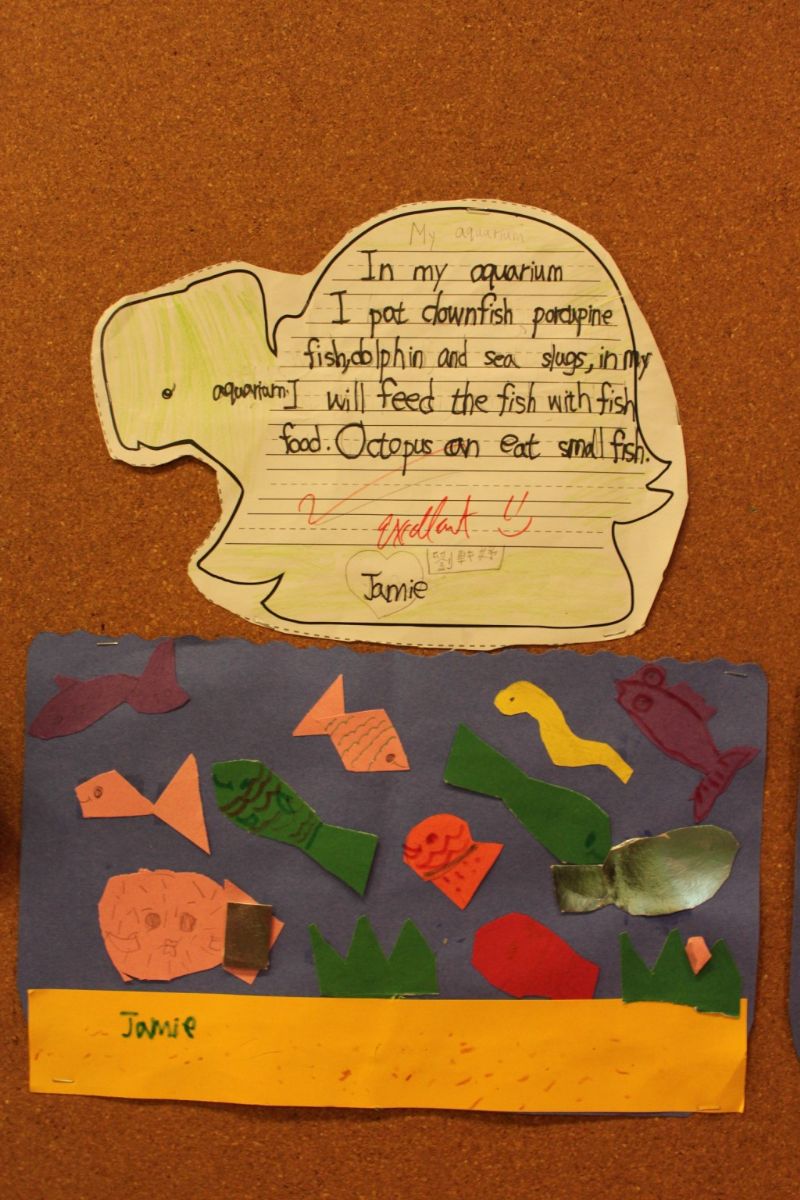 My aquarium
In my aquarium
I pot clownfish porcupine
fish, dolphin and sea slugs, in my
aquarium. I will feed the fish with fish
food. Octopus can eat small fish.
excellent
Jamie
Jamie